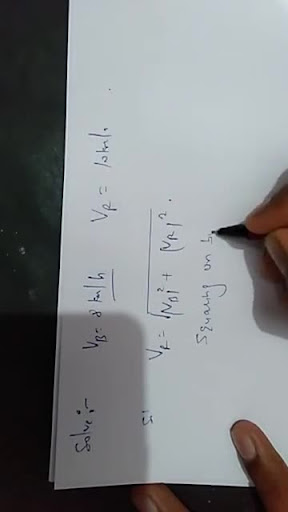 Solve:-
V_B = 8 km/h V_R = 10 km/.
V_R = √(V_B)² + (V_R)².
Squaring on b